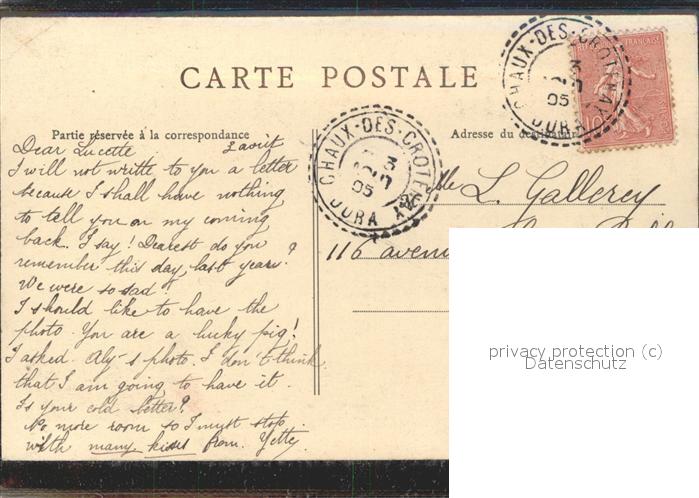 CARTE POSTALE
Partie réservée à la correspondance
Adresse du destinataire
Dear Lucette. 3 août
I will not write to you a letter
because I shall have nothing
to tell you on my coming
back. I say! Dearest do you
remember this day last year?
We were so sad!
I should like to have the
photo. You are a lucky pig!
I asked Aly's photo. I don't think
that I am going to have it.
Is your cold better?
No more room so I must stop
with many kisses from Yette
lle L. Gallerey
116 avenu
CHAUX-DES-CROTENAY
JURA
05
CHAUX-DES-CROTENAY
JURA
05
FRANÇAISE
10
privacy protection (c)
Datenschutz